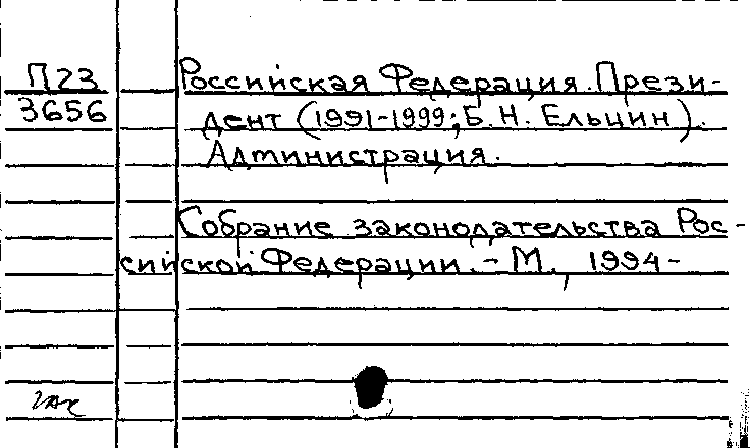 П23 Российская Федерация. Прези-
3656 дент (1991-1999; Б. Н. Ельцин).
Администрация.
Собрание законодательства Рос-
сийской Федерации. - М., 1994-